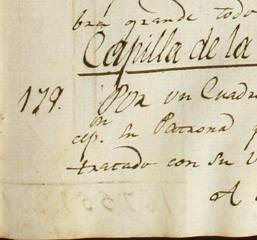 bra grande todo
Capilla de la
179. Por un Cuadr
on
cep. su Patrona
tratado con su V